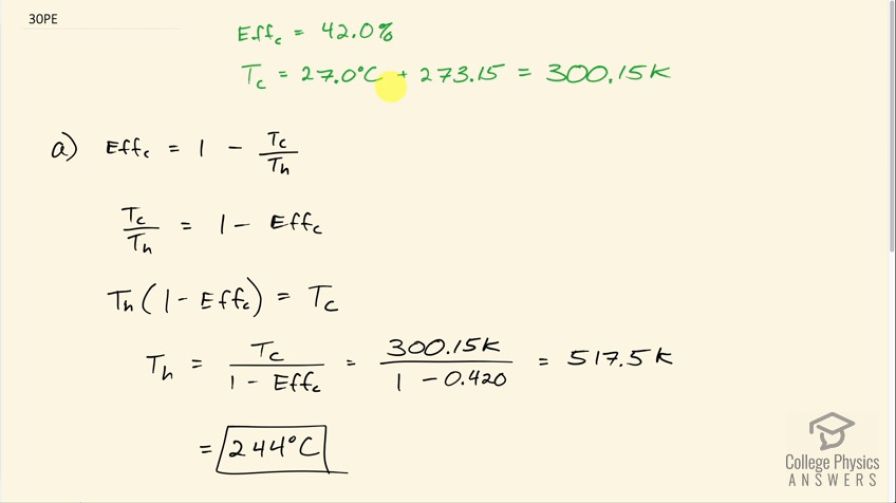 30PE
Eff_c = 42.0%
T_c = 27.0°C + 273.15 = 300.15K
a) Eff_c = 1 - T_c/T_h
T_c/T_h = 1 - Eff_c
T_h(1 - Eff_c) = T_c
T_h = T_c/(1 - Eff_c) = 300.15K/(1 - 0.420) = 517.5K
= 244°C
College Physics
ANSWERS